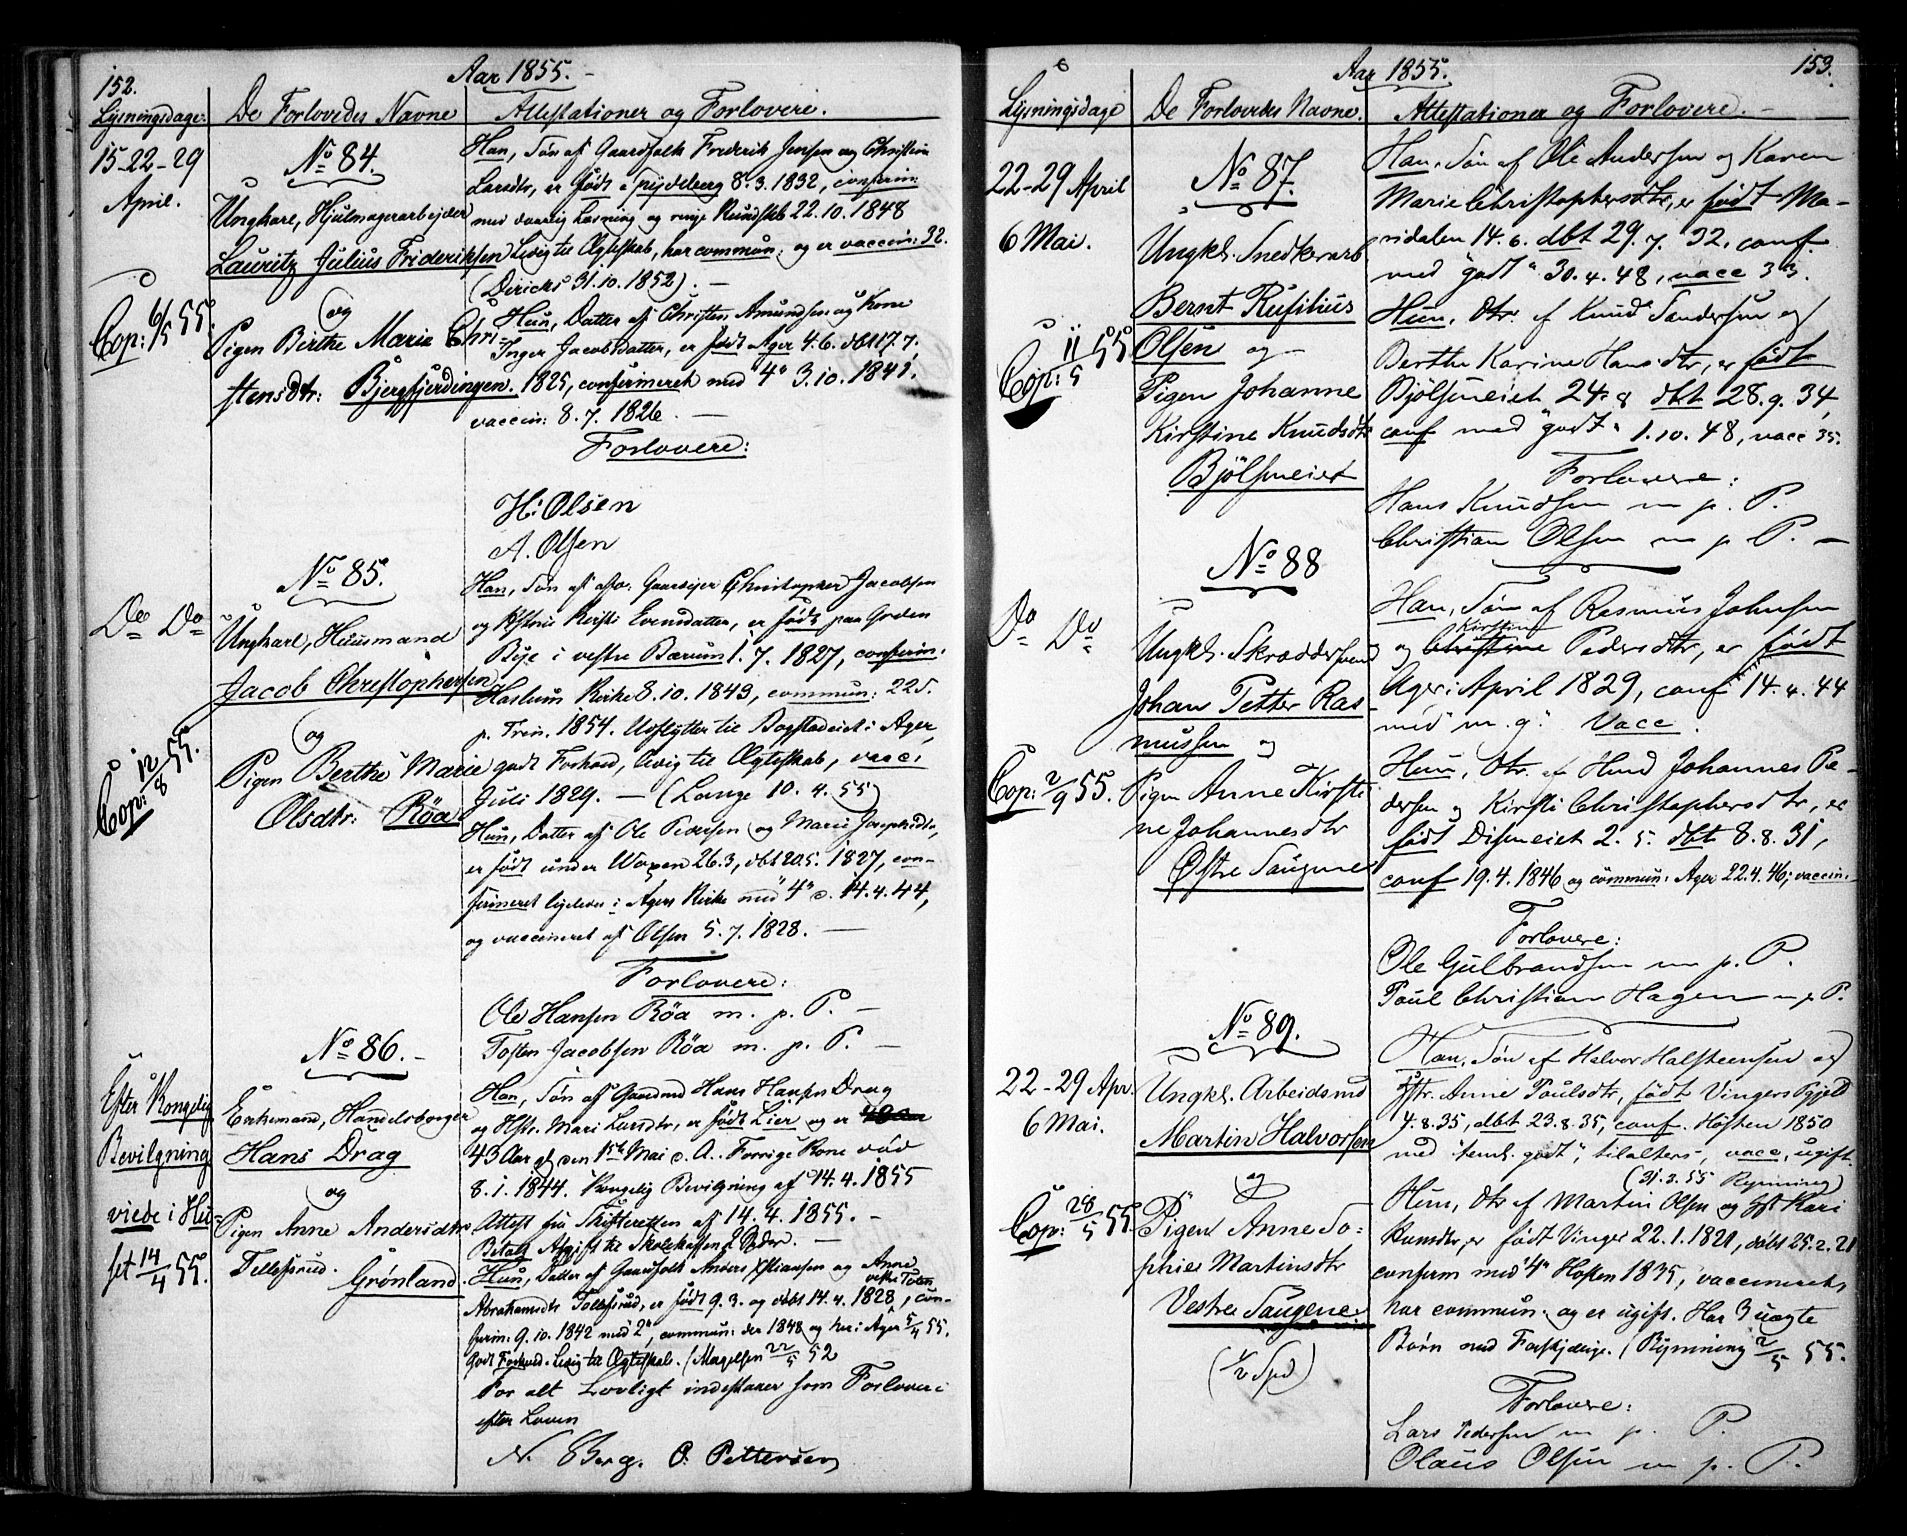 152.
Aar 1855. -
Lysningsdage:
De Forlovedes Navne
Attestationer og Forlovere.
15-22-29
April.
No 84.
Ungkarl, Hjulmagerarbejder
Lauritz Julius Frideriksen
og
Pigen Birthe Marie Chri-
stensdtr: Bjergfjerdingen.
Cop: 6/5 55.
Han, Søn af Gaardfolk Frederik Jensen og Christin
Larsdtr, er født i Spydeberg 8.3.1832, confirm:
med daarlig Læsning og ringe Kundskab 22.10.1848
Ledig til Ægteskab, har commun: og er vaccin: 32.
(Dericks 31.10.1852). -
Hun, Datter af Christen Amundsen og Kone
Inger Jacobsdatter, er født Ager 4.6. dbt 17.7.
1825, confirmeret med "4" 3.10.1841.
vaccin: 8.7.1826. -
Forlovere:
H: Olsen
A. Olsen
Do Do
No 85.
Ungkarl, Huusmand
Jacob Christophersen
og
Pigen Berthe Marie
Olsdtr: Røa
Cop: 12/8 55.
Han, Søn af afdo. Gaardejer Christopher Jacobsen
og Hstru Kirsti Evensdatter, er født paa Gorden
Bye i vestre Bærum 1.7.1827, confirm:
Haslum Kirke 8.10.1843, commun: 22 S.
p. Trin. 1854. Udflytter til Bogstadeiet i Ager,
godt Forhold, ledig til Ægteskab, vacc:
Juli 1829. - (Lange 10.4.55)
Hun, Datter af Ole Pedersen og Marie Josephsdtr,
er født under Woxen 26.3, dbt 20.5.1827, con-
firmeret ligeledes i Agers Kirke med "4" d. 14.4.44,
og vaccineret af Olsen 5.7.1828. -
Forlovere:
Ole Hansen Røa m. p. P. -
Tosten Jacobsen Røa m. p. P. -
Efter Kongelig
Bevilgning
viede i Hu-
set 14/4 55.
No 86. -
Enkemand, Handelsborger
Hans Drag
og
Pigen Anne Andersdtr
Tollefsrud.
Grønland.
Han, Søn af Gaardmd Hans Hansen Drag
og Hstr. Mari Larsdtr, er født Lier og er
43 Aar gl den 1ste Mai d. A. Forrige Kone død
8.1.1844. Kongelig Bevilgning af 14.4.1855
Attest fra Skifteretten af 14.4.1855. -
Betalt Afgift til Skolekassen
Hun, Datter af Gaardfolk Anders Xstiansen og Anne
vestre Toten
Abrahamsdtr Tollefsrud, er født 9.3. og døbt 14.4.1828, con-
firm: 9.10.1842 med "2", commun: der 1848 og her i Ager 5/4 55.
Godt Forhold. Ledig til Ægteskab. (Magelsen 22/5 52
For alt Lovligt indestaaer som Forlovere
efter Loven
N. Berg. O. Pettersen
Aar 1855.
153.
Lysningsdage
De Forlovedes Navne.
Attestationer og Forlovere. -
22-29 April
6 Mai.
No 87.
Ungkl. Snedkerarb
Bernt Rufilius
Olsen og
Pigen Johanne
Kirstine Knudsdtr
Bjølseneiet
Cop: 11/5 55
Han, Søn af Ole Andersen og Karen
Marie Christophersdtr, er født Ma-
ridalen 14.6. dbt 29.7.32, conf.
med "godt" 30.4.48, vacc 33.
Hun, Dtr. af Knud Sandersen og
Berthe Karine Hansdtr, er født
Bjølseneiet 24.8 dbt 28.9.34,
conf med "godt" 1.10.48, vacc 35.
Forlovere:
Hans Knudsen m p. P.
Christian Olsen m p P. -
Do Do
No 88
Ungkl. Skræddersvend
Johan Petter Ras-
mussen og
Pigen Anne Kirsti-
ne Johannesdtr
Østre Saugene
Cop: 2/9 55.
Han, Søn af Rasmus Johnsen
Kirstine
og Christine Pedersdtr, er født
Ager i April 1829, conf 14.4.44
med "m. g." Vacc.
Hun, Dtr. af Hmd Johannes Pe-
dersen og Kirsti Christophersdtr, er
født Diseneiet 2.5. dbt 8.8.31,
conf 19.4.1846 og commun: Ager 22.4.46; vaccin:
Forlovere:
Ole Gulbrandsen m p. P.
Poul Christian Hagen m p P.
22-29 Apr.
6 Mai.
No 89.
Ungkl. Arbeidsmd
Martin Halvorsen
og
Pigen Anne So-
phie Martinsdtr
Vestre Saugene
(1/2 Spd)
Cop: 28/5 55.
Han, Søn af Halvor Halsteensen og
Hstr. Anne Poulsdtr, født Vinger Prgjeld
4.8.35, dbt 23.8.35, conf. Høsten 1850
med "teml. godt", tilalters, vacc, ugift.
(31.3.55 Rynning)
Hun, Dtr af Martin Olsen og Hst Kari
Knudsdtr, er født Vinger 22.1.1821, døbt 25.2.21
confirm med "4" Høsten 1835, vaccineret,
har commun. og er ugift. Har 3 uægte
Børn med Forskjellige. (Rynning 2/5 55.
Forlovere:
Lars Pedersen m p. P.
Olaus Olsen m p. P.